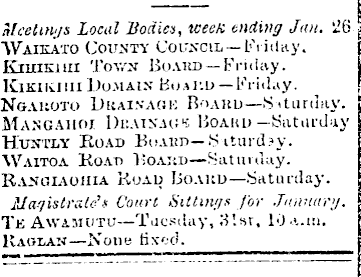 Meetings Local Bodies, week ending Jan. 26
WAIKATO COUNTY COUNCIL—Friday.
KIHIKIHI TOWN BOARD—Friday.
KIHIKIHI DOMAIN BOARD—Friday.
NGAROTO DRAINAGE BOARD—Saturday.
MANGAHOI DRAINAGE BOARD—Saturday
HUNTLY ROAD BOARD—Saturday.
WAITOA ROAD BOARD—Saturday.
RANGIAOHIA ROAD BOARD—Saturday.
Magistrate's Court Sittings for January.
TE AWAMUTU—Tuesday, 31st, 10 a.m.
RAGLAN—None fixed.